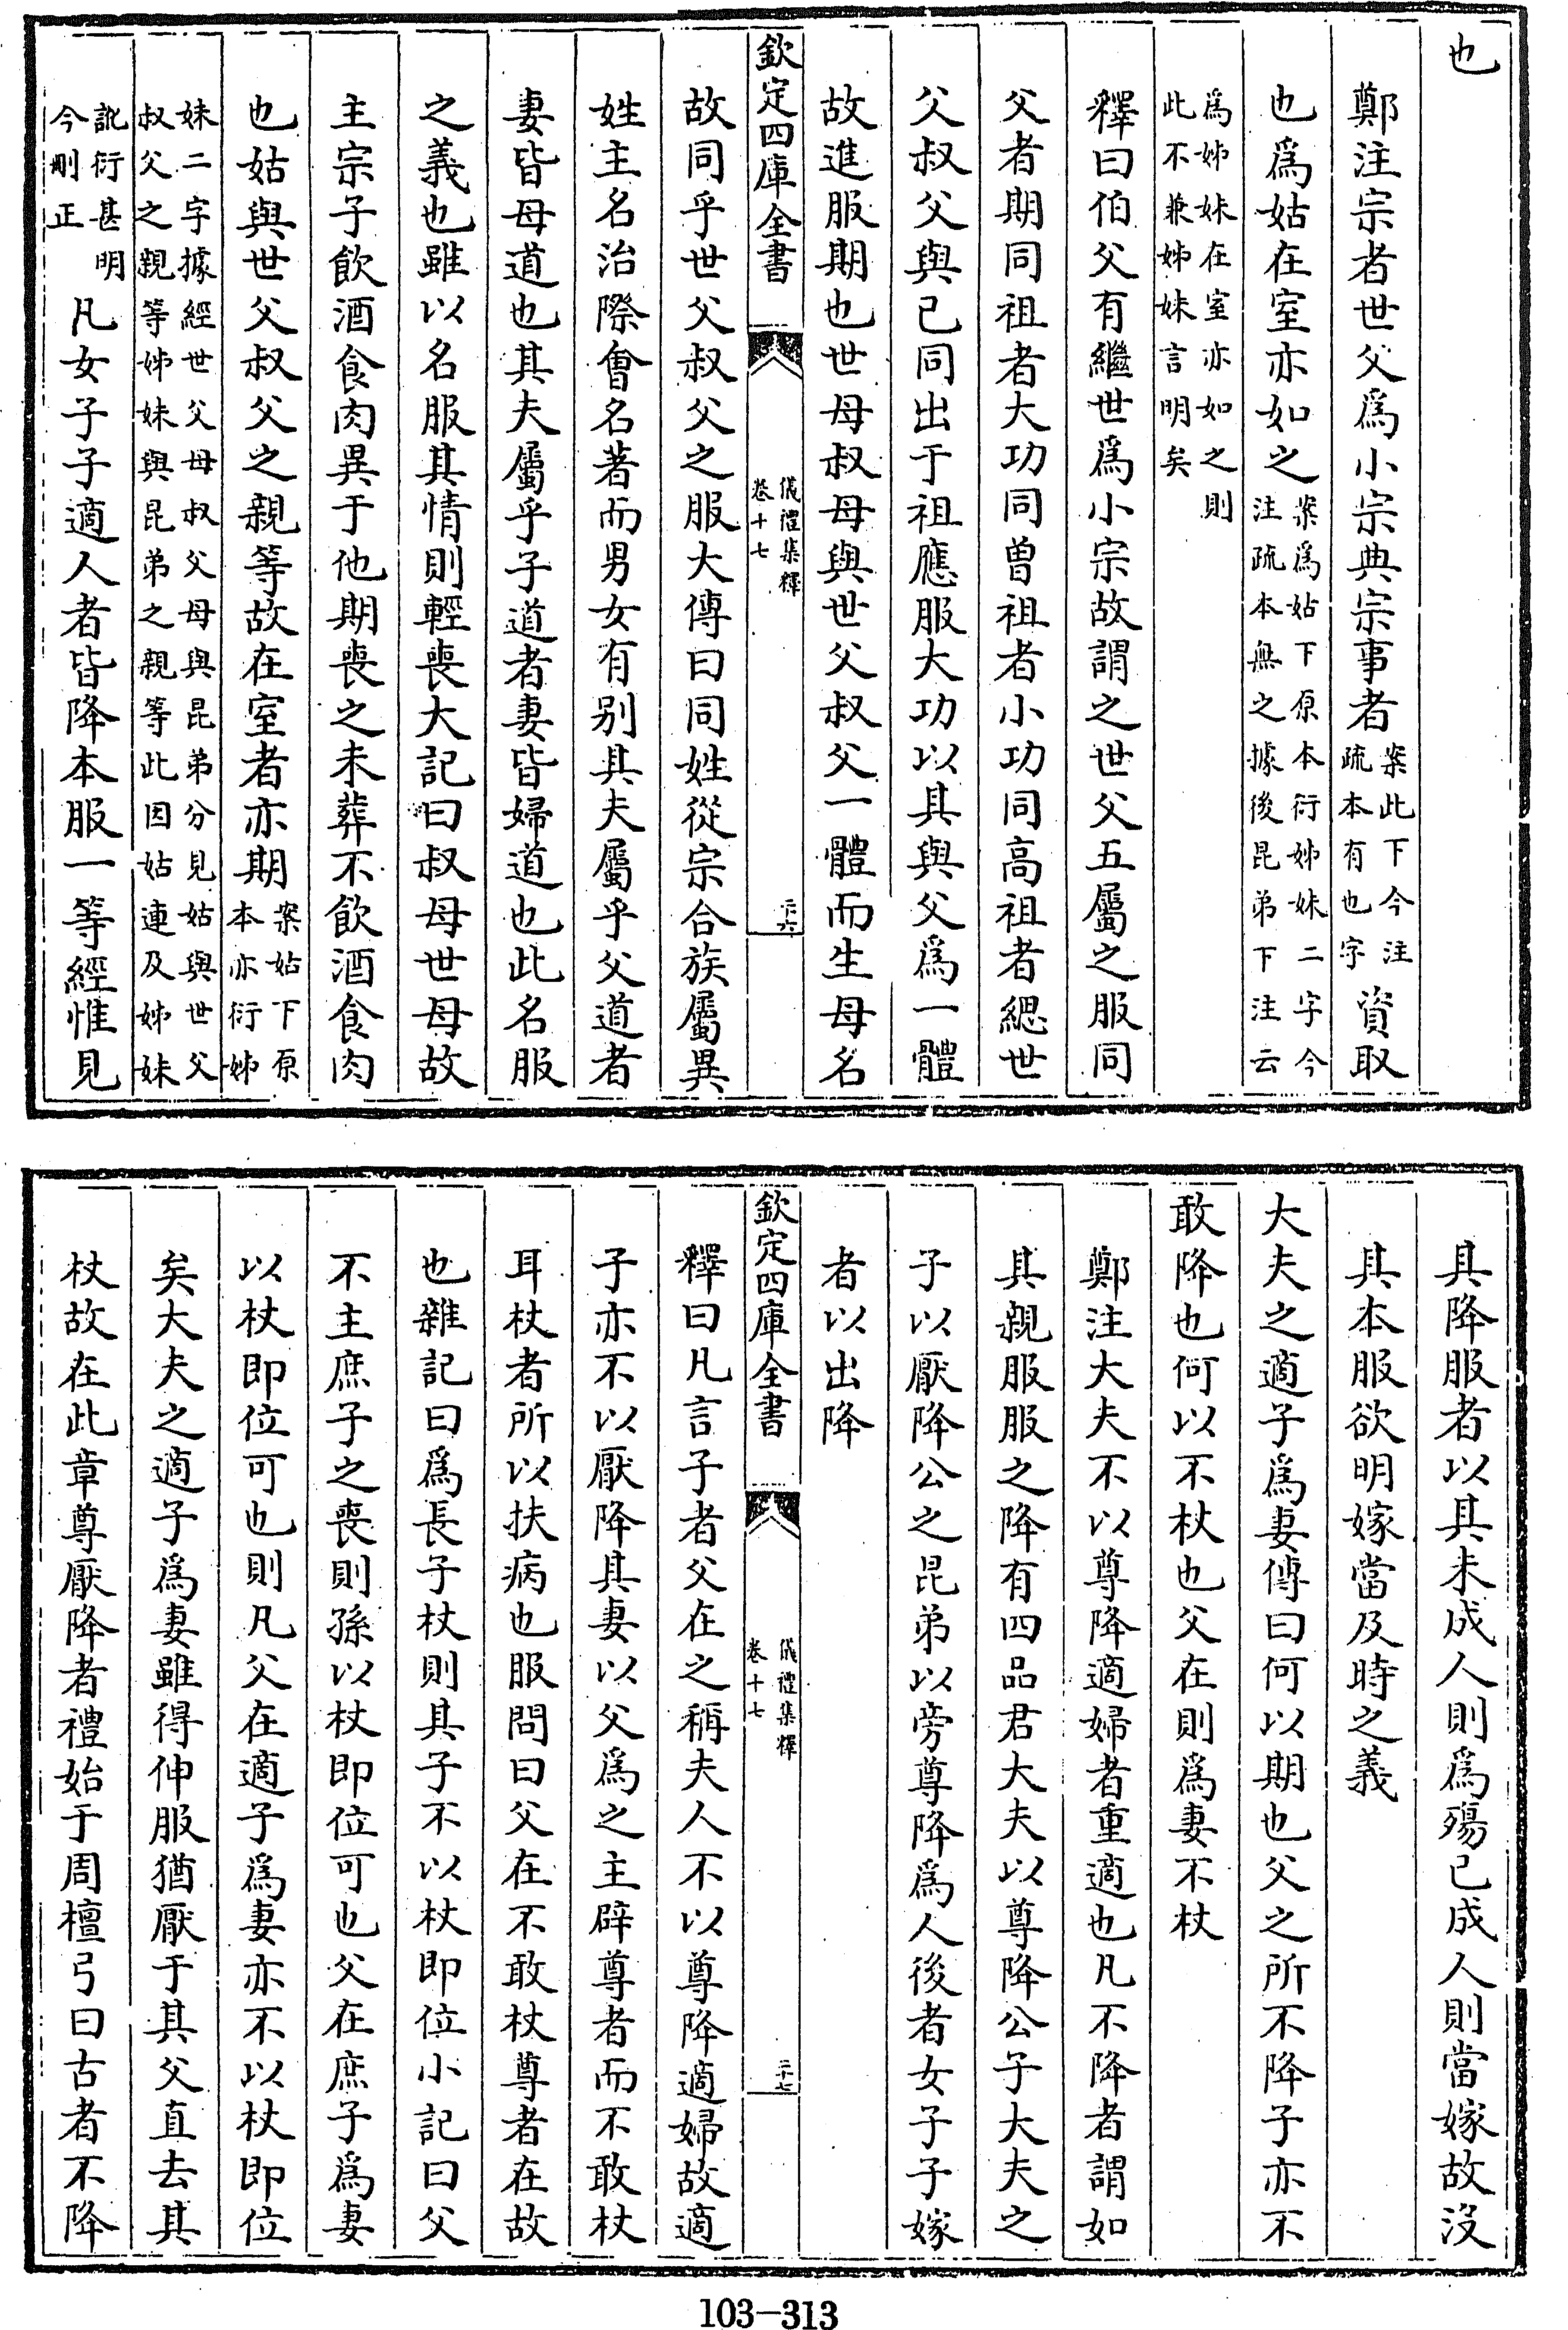 也
鄭注宗者世父爲小宗典宗事者案此下今注疏本有也字資取
也爲姑在室亦如之案爲姑下原本衍姊妹二字今注疏本無之據後昆弟下注云
爲姊妹在室亦如之則此不兼姊妹言明矣
釋曰伯父有繼世爲小宗故謂之世父五屬之服同
父者期同祖者大功同曾祖者小功同高祖者緦世
父叔父與已同出于祖應服大功以其與父爲一體
故進服期也世母叔母與世父叔父一體而生母名
欽定四庫全書
儀禮集釋
卷十七
二十六
故同乎世父叔父之服大傳曰同姓從宗合族屬異
姓主名治際會名著而男女有别其夫屬乎父道者
妻皆母道也其夫屬乎子道者妻皆婦道也此名服
之義也雖以名服其情則輕喪大記曰叔母世母故
主宗子飲酒食肉異于他期喪之未葬不飲酒食肉
也姑與世父叔父之親等故在室者亦期案姑下原本亦衍姊
妹二字據經世父母叔父母與昆弟分見姑與世父叔父之親等姊妹與昆弟之親等此因姑連及姊妹
訛衍甚明今刪正凡女子子適人者皆降本服一等經惟見
其降服者以其未成人則爲殤已成人則當嫁故没
其本服欲明嫁當及時之義
大夫之適子爲妻傳曰何以期也父之所不降子亦不
敢降也何以不杖也父在則爲妻不杖
鄭注大夫不以尊降適婦者重適也凡不降者謂如
其親服服之降有四品君大夫以尊降公子大夫之
子以厭降公之昆弟以旁尊降爲人後者女子子嫁
者以出降
欽定四庫全書
儀禮集釋
卷十七
二十七
釋曰凡言子者父在之稱夫人不以尊降適婦故適
子亦不以厭降其妻以父爲之主辟尊者而不敢杖
耳杖者所以扶病也服問曰父在不敢杖尊者在故
也雜記曰爲長子杖則其子不以杖即位小記曰父
不主庶子之喪則孫以杖即位可也父在庶子爲妻
以杖即位可也則凡父在適子爲妻亦不以杖即位
矣大夫之適子爲妻雖得伸服猶厭于其父直去其
杖故在此章尊厭降者禮始于周檀弓曰古者不降
103-313